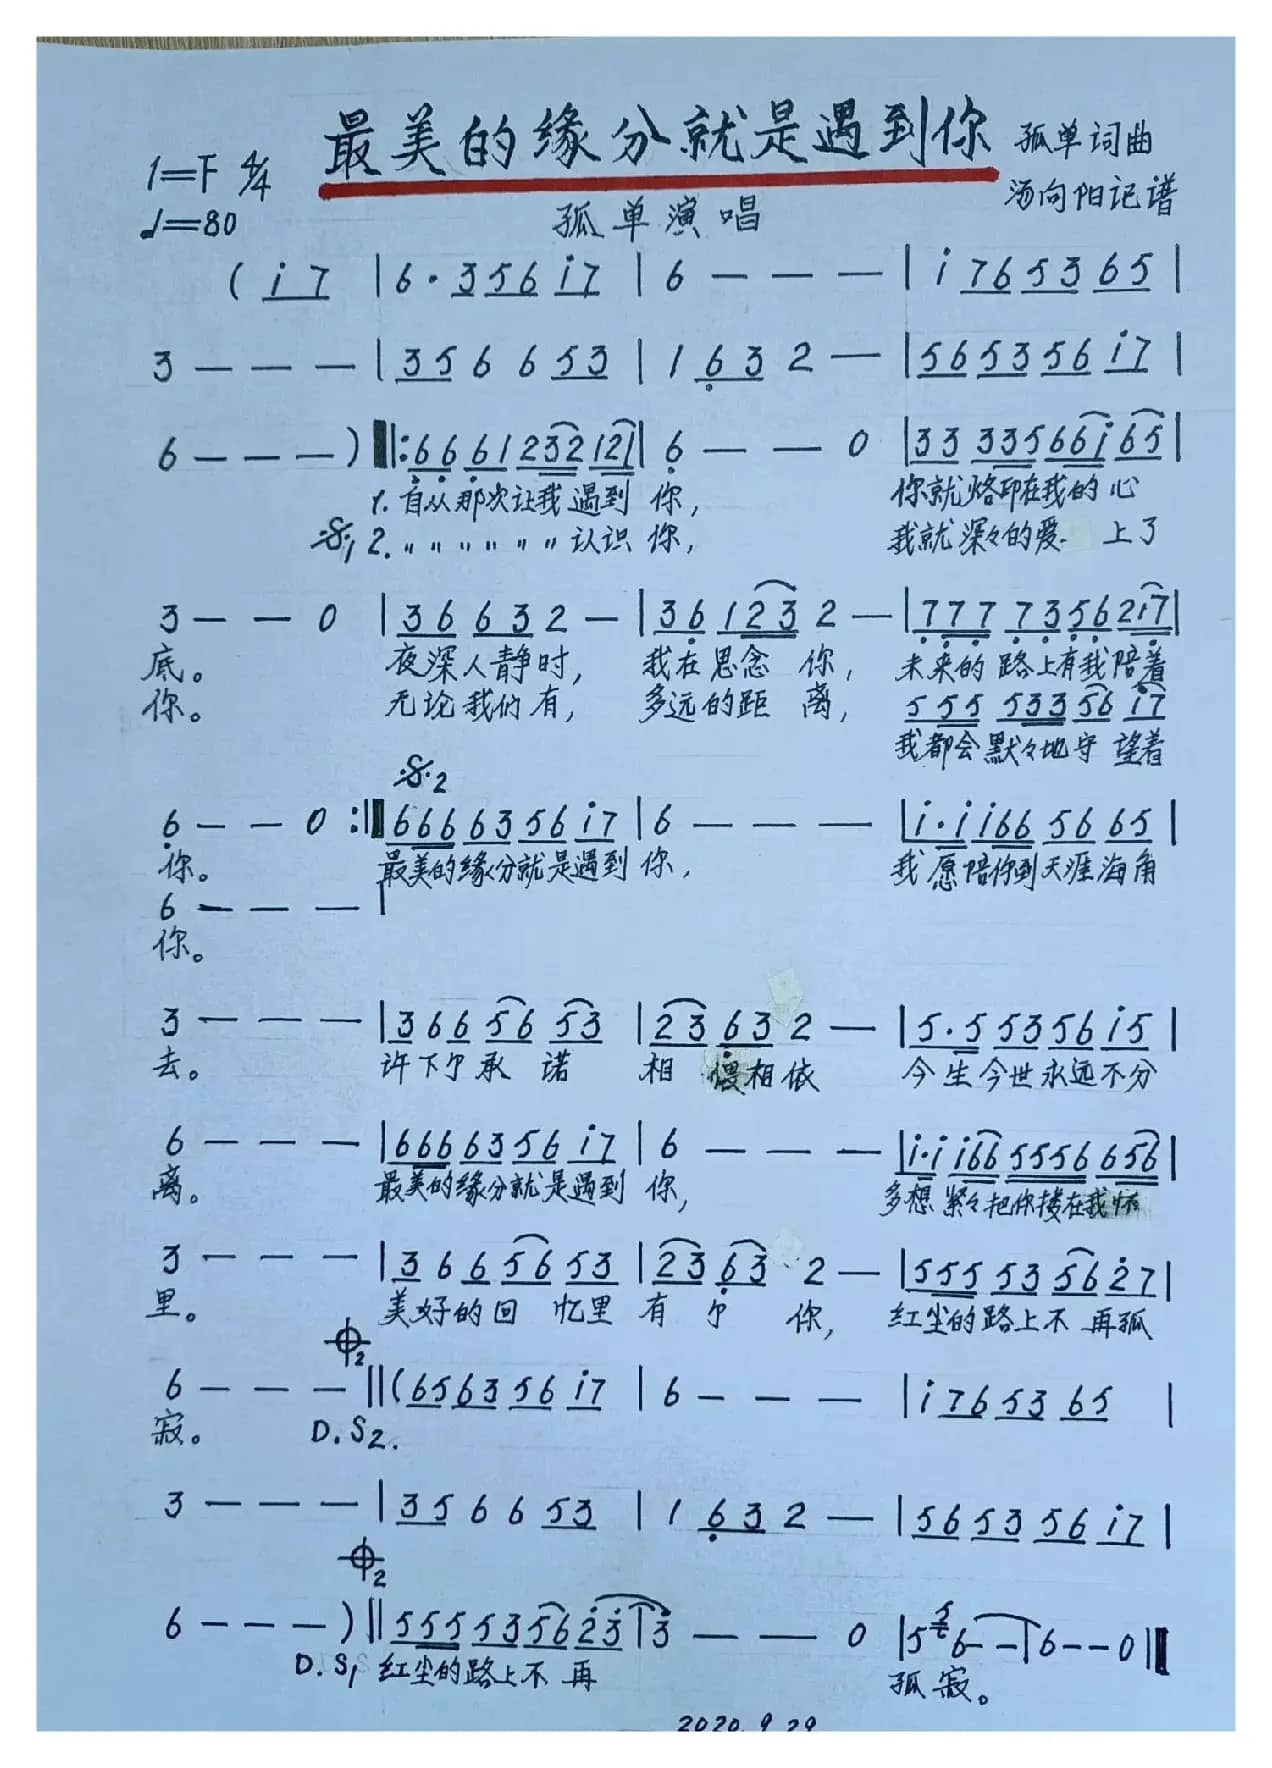 最美的缘分就是遇到你 孤单词曲
1=F 4/4 汤向阳记谱
♩=80 孤单演唱
( i 7 | 6 · 3 5 6 i 7 | 6 — — — | i 7 6 5 3 6 5 |
3 — — — | 3 5 6 6 5 3 | 1 6 3 2 — | 5 6 5 3 5 6 i 7 |
6 — — — ) ‖: 6 6 6 1 2 3 2 1 2 1 | 6 — — 0 | 3 3 3 3 5 6 6 i 6 5 |
1. 自从那次让我遇到 你, 你就烙印在我的心
𝄋1 2. 〃 〃 〃 〃 〃 〃 认识 你, 我就深々的爱 上了
3 — — 0 | 3 6 6 3 2 — | 3 6 1 2 3 2 — | 7 7 7 7 3 5 6 2 i 7 |
底。 夜深人静时, 我在思念 你, 未来的路上有我陪着
你。 无论我们有, 多远的距 离, 5 5 5 5 3 3 5 6 i 7
我都会默々地守 望着
𝄋2
6 — — 0 :‖ 6 6 6 6 3 5 6 i 7 | 6 — — — | i · i i 6 6 5 6 6 5 |
你。 最美的缘分就是遇到 你, 我愿陪你到天涯海角
6 — — — |
你。
3 — — — | 3 6 6 5 6 5 3 | 2 3 6 3 2 — | 5 · 5 5 3 5 6 i 5 |
去。 许下了承 诺 相 偎相依 今生今世永远不分
6 — — — | 6 6 6 6 3 5 6 i 7 | 6 — — — | i · i i 6 6 5 5 5 6 6 5 6 |
离。 最美的缘分就是遇到 你, 多想紧々把你搂在我怀
3 — — — | 3 6 6 5 6 5 3 | 2 3 6 3 2 — | 5 5 5 5 3 5 6 2 7 |
里。 美好的回 忆里 有 了 你, 红尘的路上不 再孤
𝄌2
6 — — — ‖ ( 6 5 6 3 5 6 i 7 | 6 — — — | i 7 6 5 3 6 5 |
寂。 D.S2.
3 — — — | 3 5 6 6 5 3 | 1 6 3 2 — | 5 6 5 3 5 6 i 7 |
𝄌2
6 — — — ) ‖ 5 5 5 5 3 5 6 2 3 | 3 — — 0 | 5 5 6 — — | 6 — — 0 ‖
D.S1 红尘的路上不 再 孤 寂。
2020.9.29